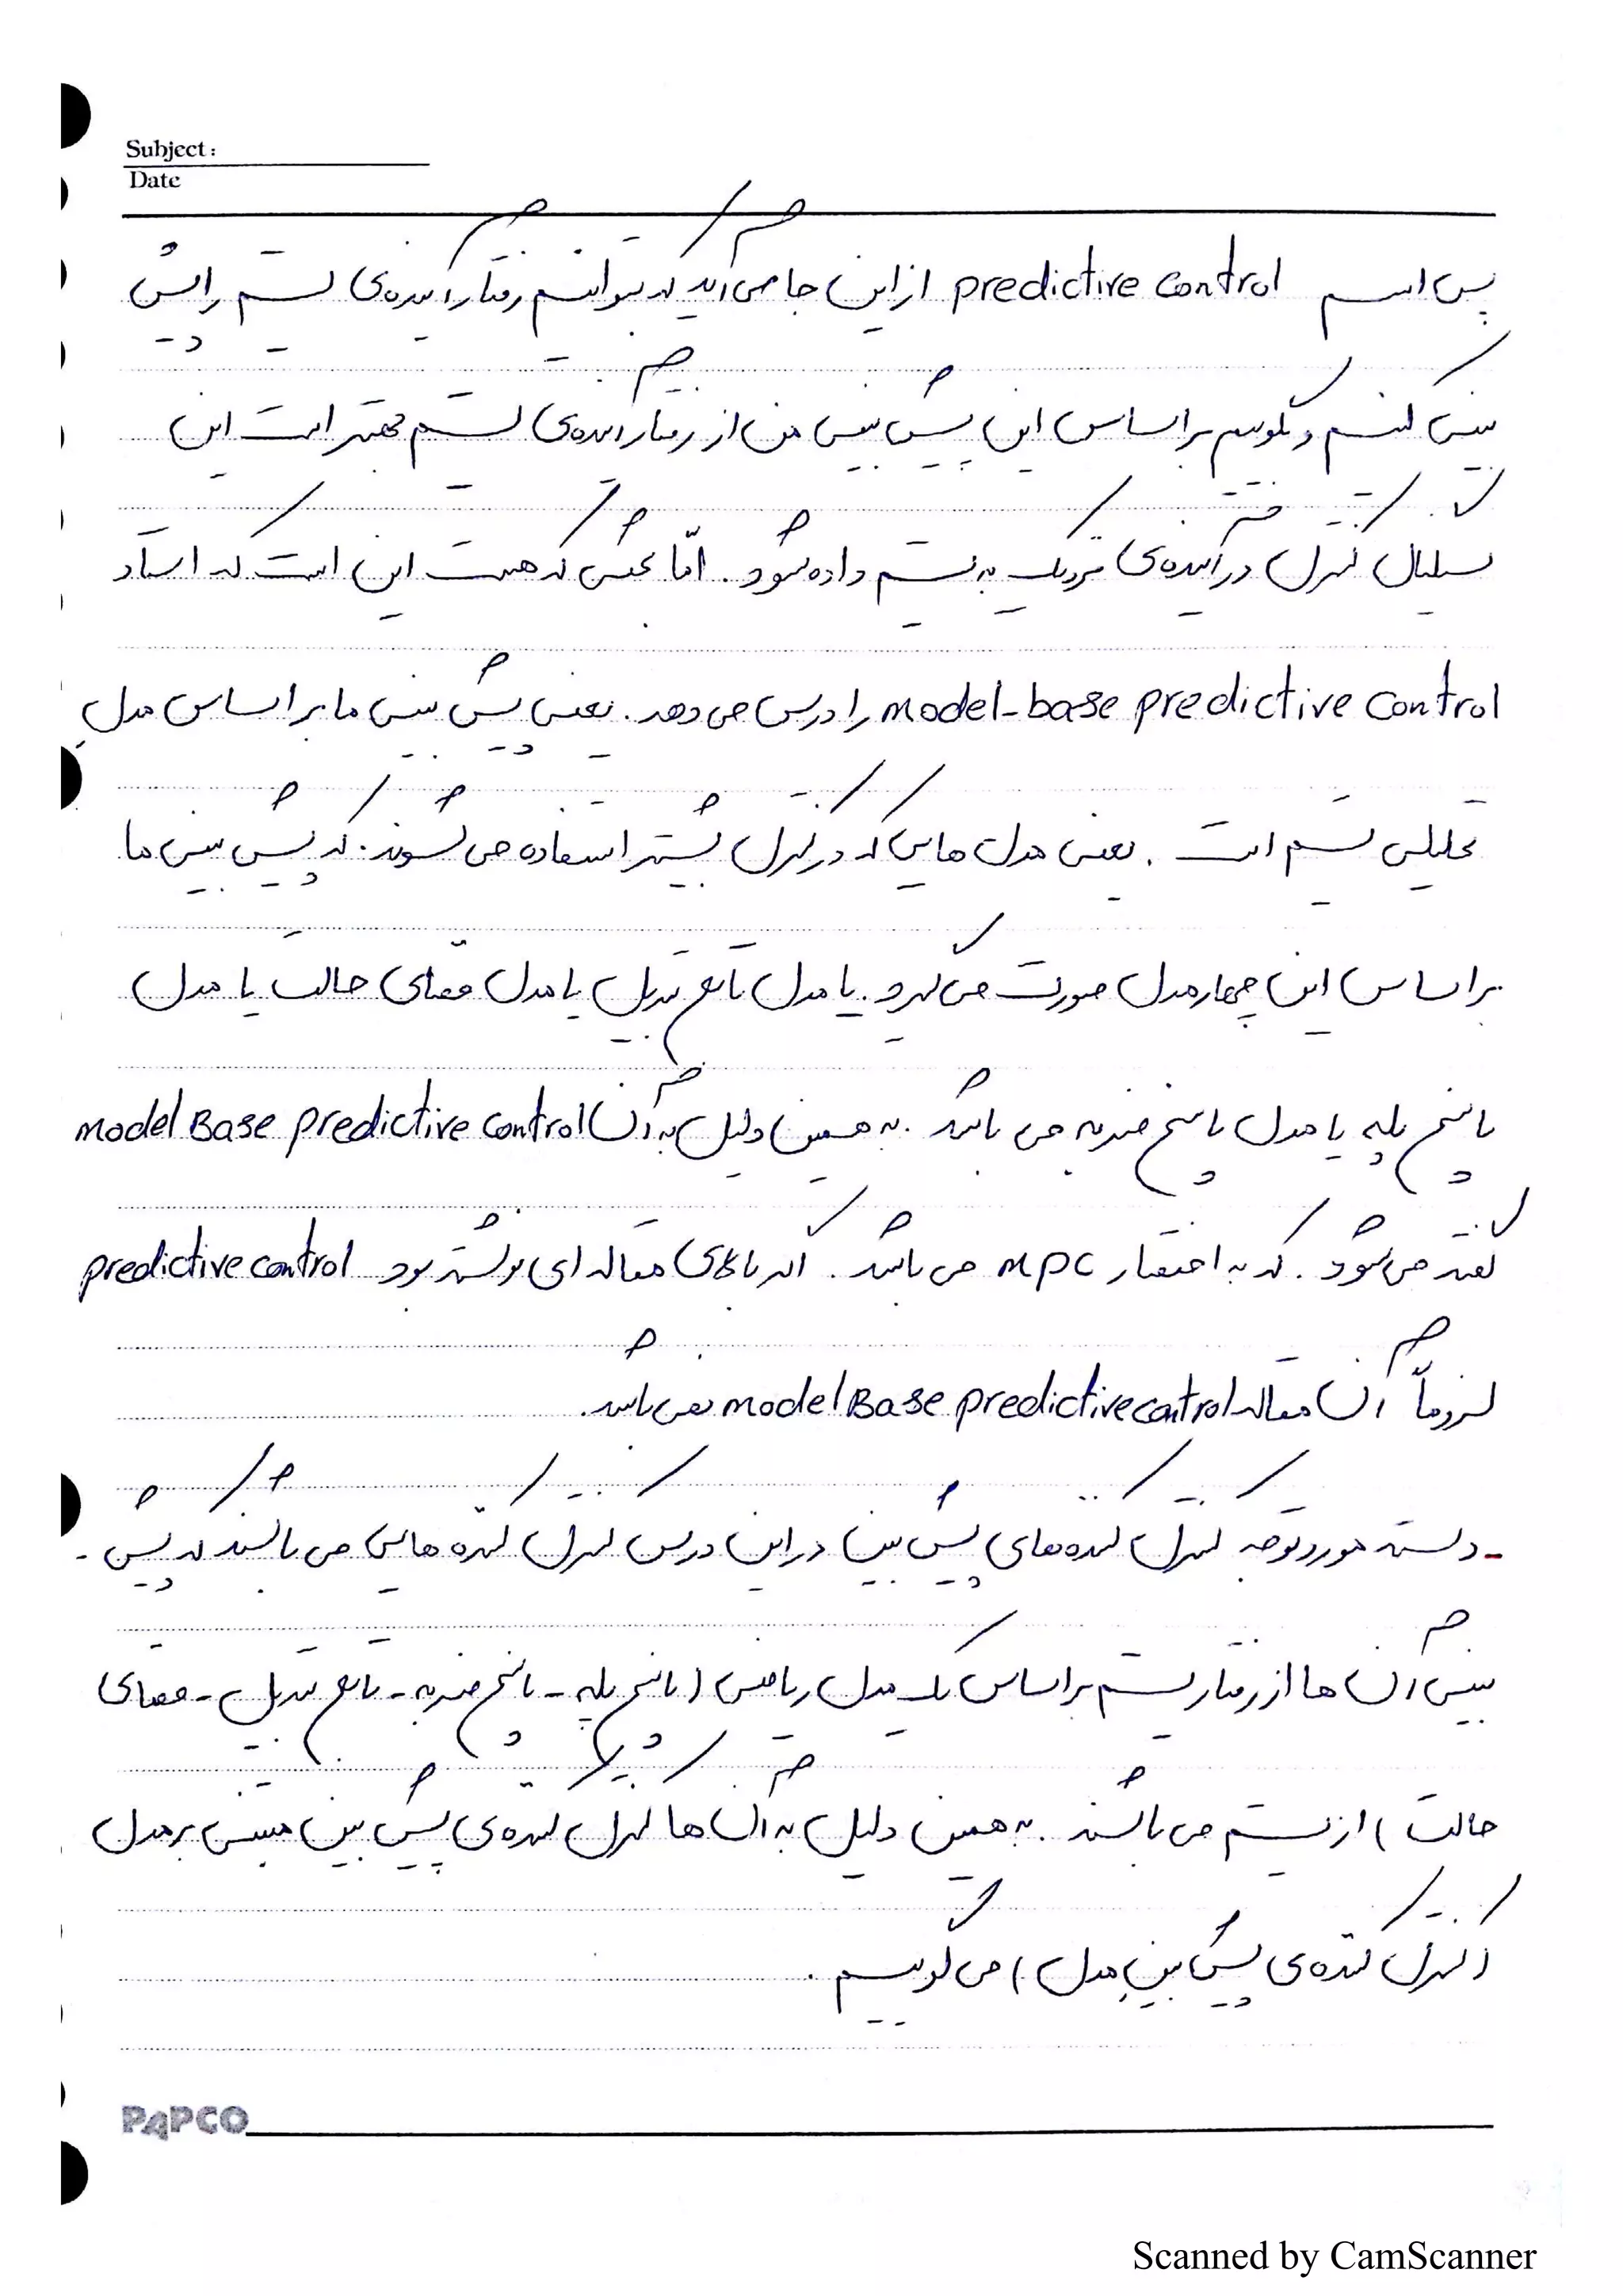 Subject:
Date
پس اسم predictive control از این جا می آید که بتوانیم رفتار آینده‌ی سیستم را پیش
بینی کنیم و بگوییم بر اساس این پیش بینی من از رفتار آینده‌ی سیستم بهتر است این
سیگنال کنترل در آینده‌ی نزدیک به سیستم داده شود. امّا بحثی که هست این است که استاد
model-base predictive control را درس می دهد. یعنی پیش بینی ما بر اساس مدلِ
تحلیلی سیستم است. یعنی مدل هایی که در کنترل بیشتر استفاده می شوند. که پیش بینی ما
بر اساس این چهار مدل صورت می گیرد. یا مدل تابع تبدیل یا مدل فضای حالت یا مدل
پاسخ پله یا مدل پاسخ ضربه می باشد. به همین دلیل به آن model Base predictive control
گفته می شود. که به اختصار MPC می باشد. اگر بالای مقاله ای نوشته بود predictive control
لزوماً آن مقاله model Base predictive control نمی باشد.
- دسته مورد توجه کنترل کننده های پیش بین در این درس کنترل کننده هایی می باشند که پیش-
بینی آن ها از رفتار سیستم بر اساس یک مدل ریاضی (پاسخ پله - پاسخ ضربه - تابع تبدیل - فضای
حالت) از سیستم می باشند. به همین دلیل به آن ها کنترل کننده‌ی پیش بین مبتنی بر مدل
(کنترل کننده‌ی پیش بینِ مدل) می گوییم.
PAPCO
Scanned by CamScanner